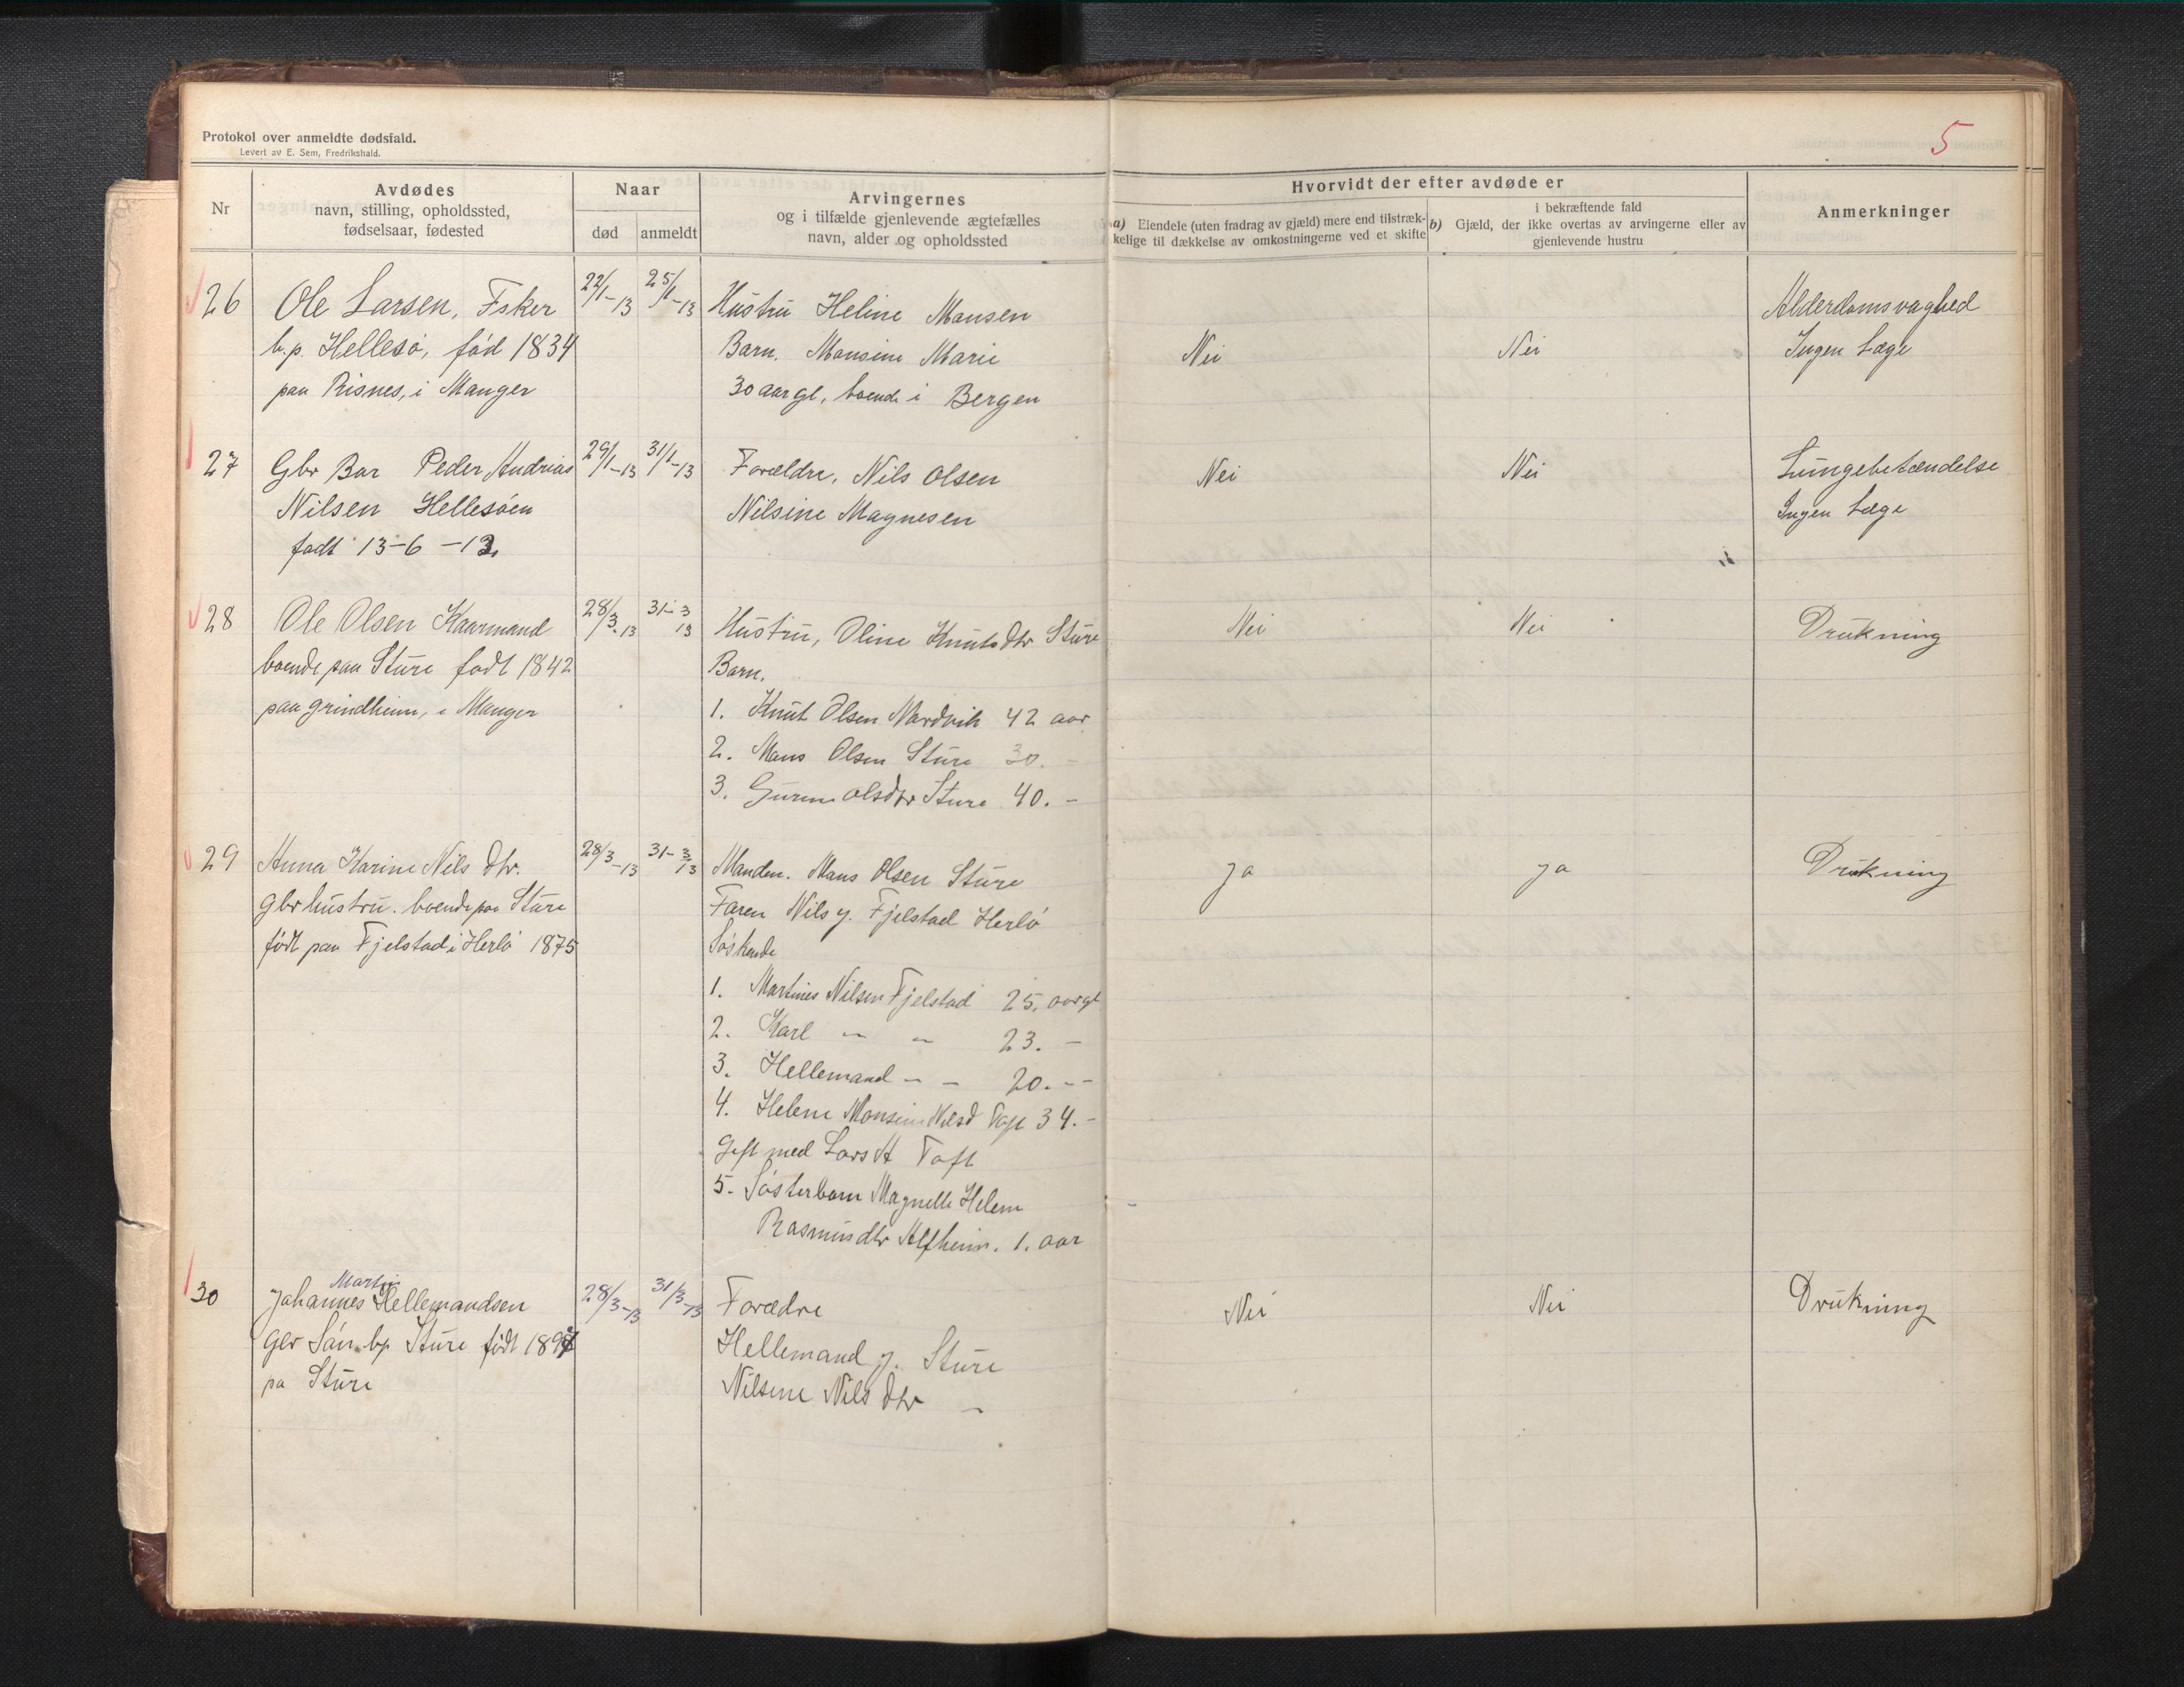 Protokol over anmeldte dødsfald.
Levert av E. Sem, Fredrikshald.
5
Nr
Avdødes
navn, stilling, opholdssted,
fødselsaar, fødested
Naar
død
anmeldt
Arvingernes
og i tilfælde gjenlevende ægtefælles
navn, alder og opholdssted
Hvorvidt der efter avdøde er
a) Eiendele (uten fradrag av gjæld) mere end tilstræk-
kelige til dækkelse av omkostningerne ved et skifte
i bekræftende fald
b) Gjæld, der ikke overtas av arvingerne eller av
gjenlevende hustru
Anmerkninger
26
Ole Larsen, Fsker
b.p. Hellesø, fød 1834
paa Risnes, i Manger
22/1-13
25/1-13
Hustru Heline Monsen
Barn. Monsine Marie
30 aar gl, boende i Bergen
Nei
Nei
Alderdomsvaghed
Ingen Læge
27
Gbr Bar Peder Andrias
Nilsen Hellesøen
født 13-6-12.
29/1-13
31/1-13
Forældre, Nils Olsen
Nilsine Magnesen
Nei
Nei
Lungebetændelse
Ingen Læge
28
Ole Olsen Kaarmand
boende paa Sture født 1842
paa Grindheim, i Manger
28/3-13
31-3
13
Hustru, Oline Knuts Dtr Sture
Barn.
1. Knut Olsen Nordvik 42 aar
2. Mons Olsen Sture 30. -
3. Olsdtr Sture 40. -
Nei
Nei
Drukning
29
Anna Karine Nils Dtr.
gbr hustru. boende paa Sture
født paa Fjelstad i Herlø 1875
28/3-13
31-3
13
Manden. Mons Olsen Sture
Faren Nils J. Fjelstad Herlø
Søskende
1. Martines Nilsen Fjelstad 25. aar gl
2. Karl " " 23. -
3. Hellemand " - 20. --
4. Helene Monsine Nilsd 34. -
Gift med Lars A Toft
5. Søsterbarn Magnelle Helene
Rasmusdtr Alfheim. 1. aar
Ja
Ja
Drukning
30
Martin
Johannes Hellemandsen
Søn bp Sture født
pa Sture
28/3-13
31/3-13
Forædre
Hellemand J. Sture
Nilsine Nils Dtr -
Nei
Nei
Drukning